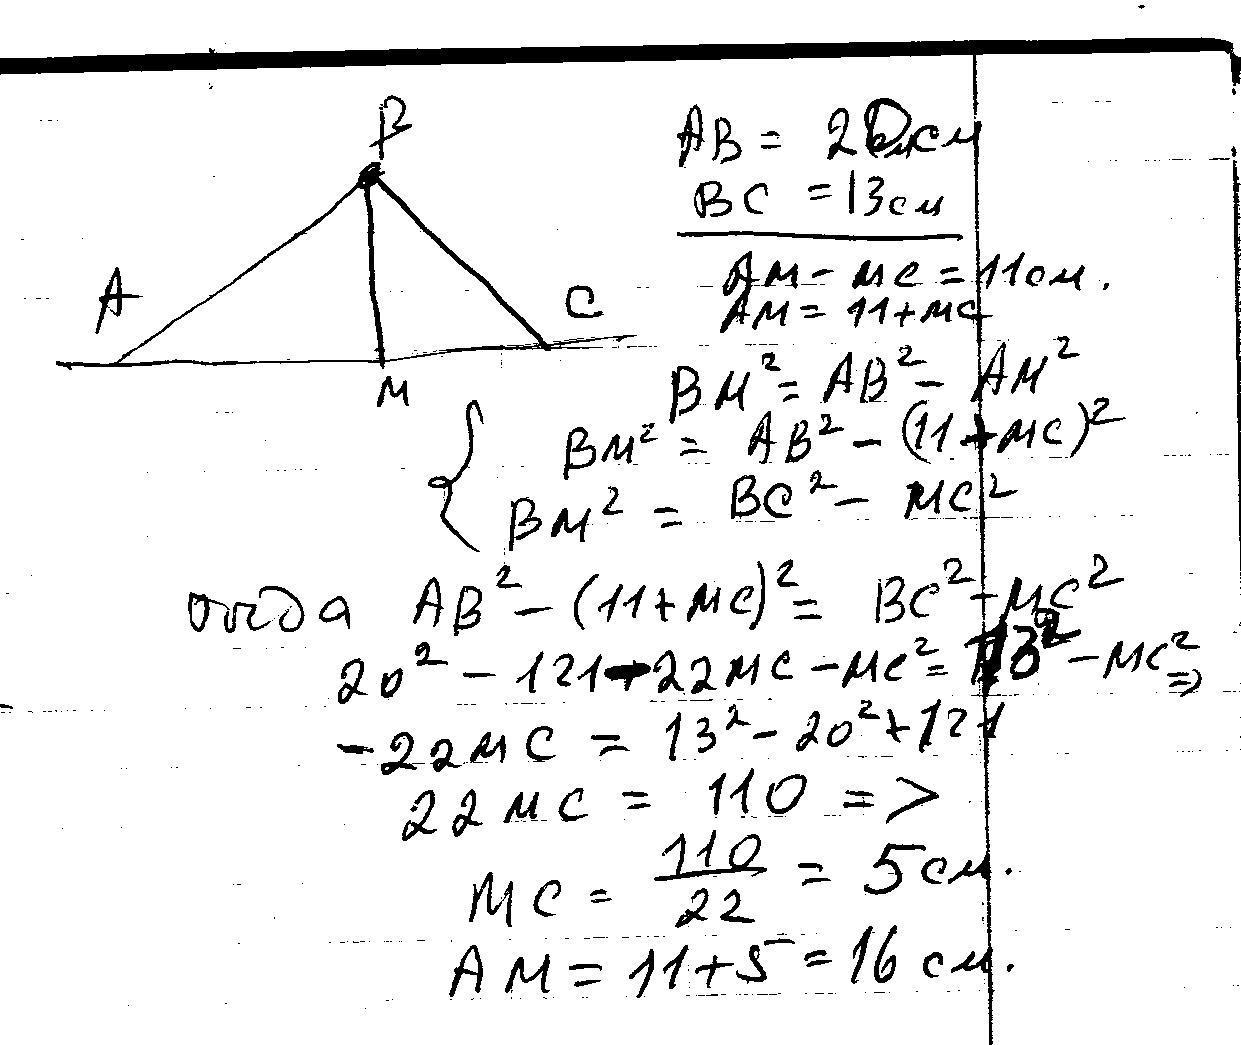 B
A
C
M
AB = 20 см
BC = 13 см
AM - MC = 11 см.
AM = 11 + MC
BM² = AB² - AM²
BM² = AB² - (11 + MC)²
BM² = BC² - MC²
тогда AB² - (11 + MC)² = BC² - MC²
20² - 121 - 22MC - MC² = 13² - MC² =>
-22MC = 13² - 20² + 121
22MC = 110 =>
MC = 110/22 = 5 см.
AM = 11 + 5 = 16 см.